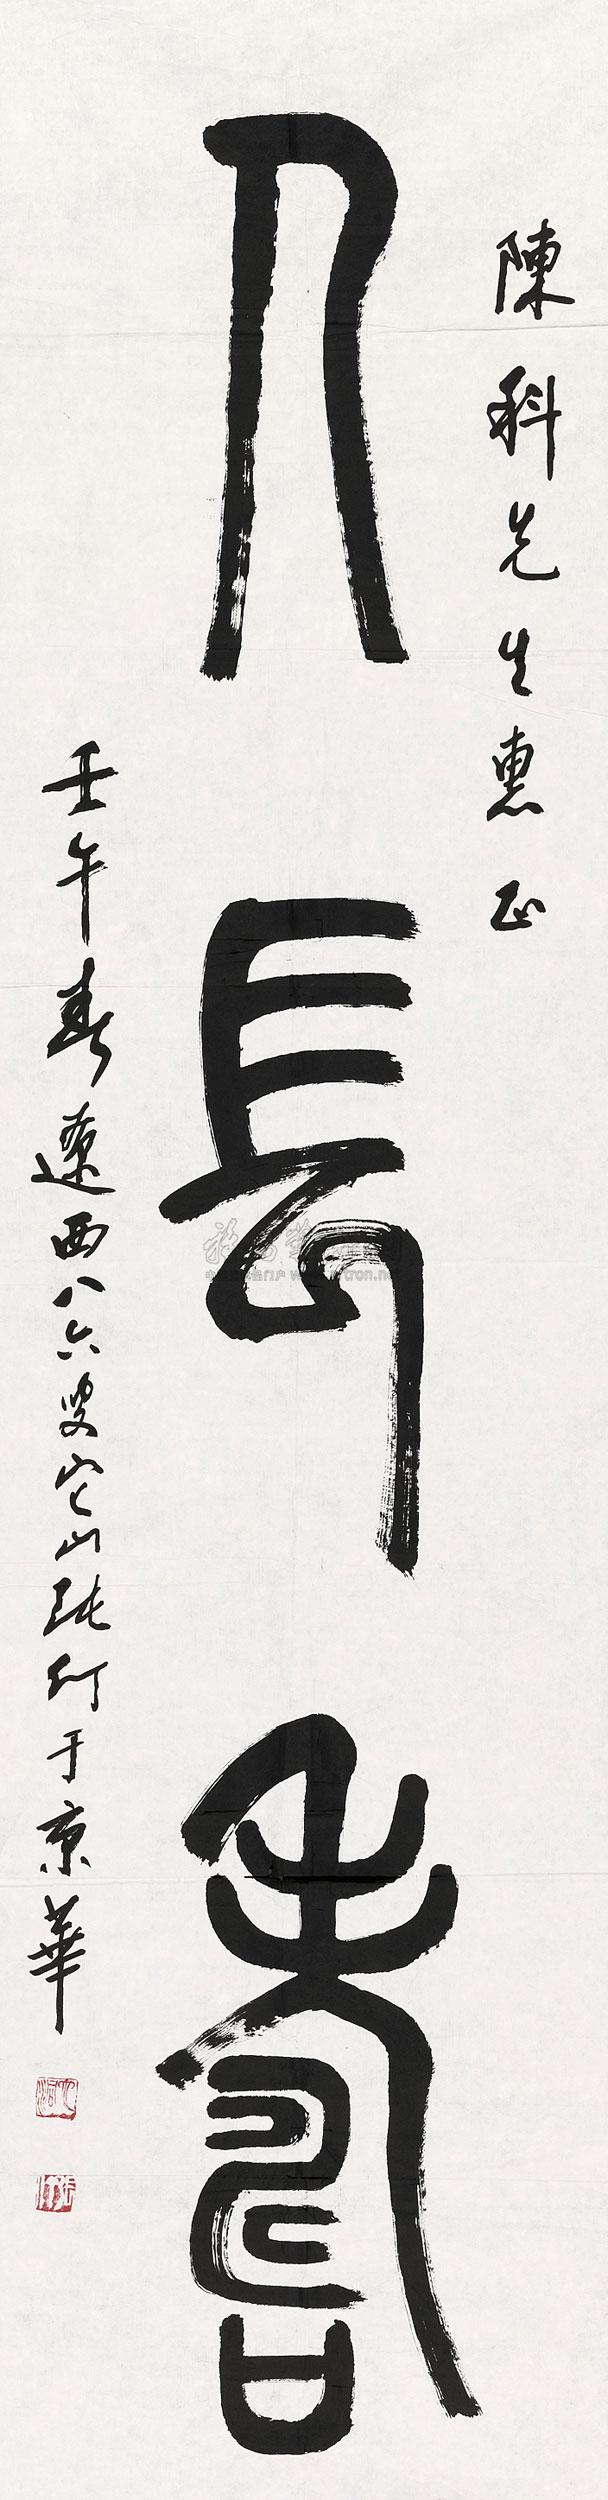 陳科先生惠正
人長壽
壬午春遼西八六叟宏山張仃于京華